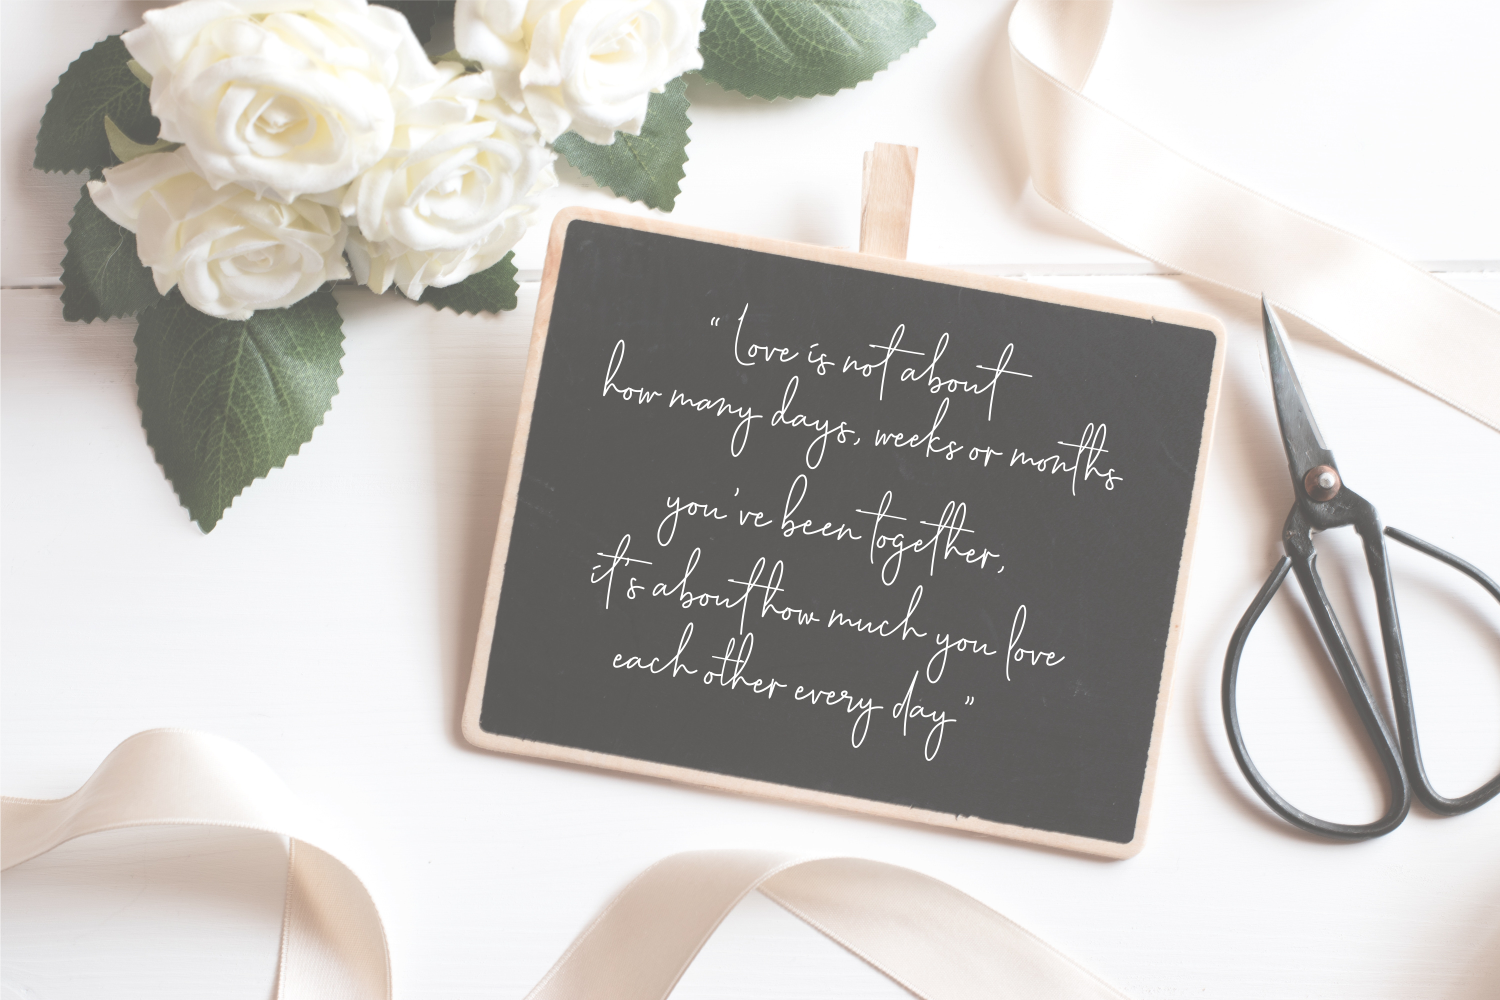 “ Love is not about
how many days, weeks or months
you've been together,
it's about how much you love
each other every day”